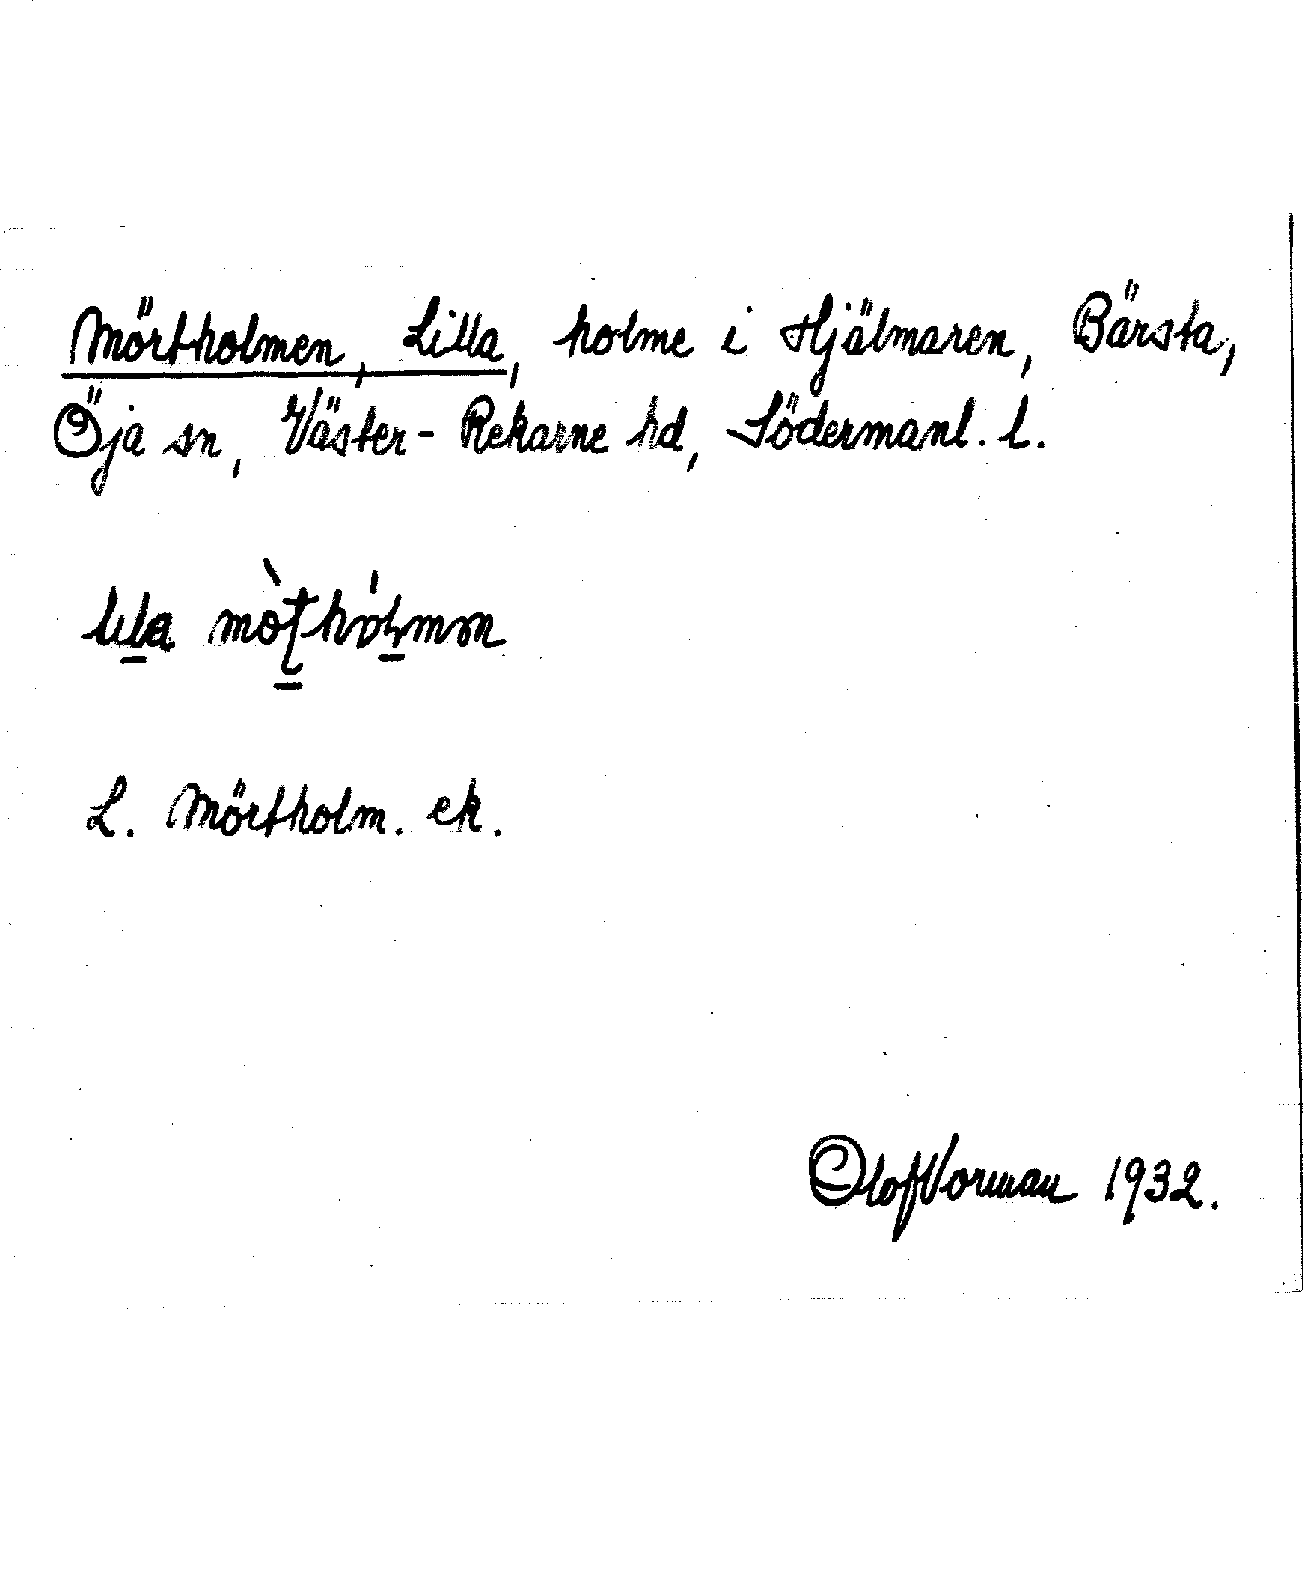 Mörtholmen, Lilla, holme i Hjälmaren, Bärsta,
Öja sn, Väster-Rekarne hd, Södermanl. l.
L. Mörtholm. ek.
Olof Vorman 1932.